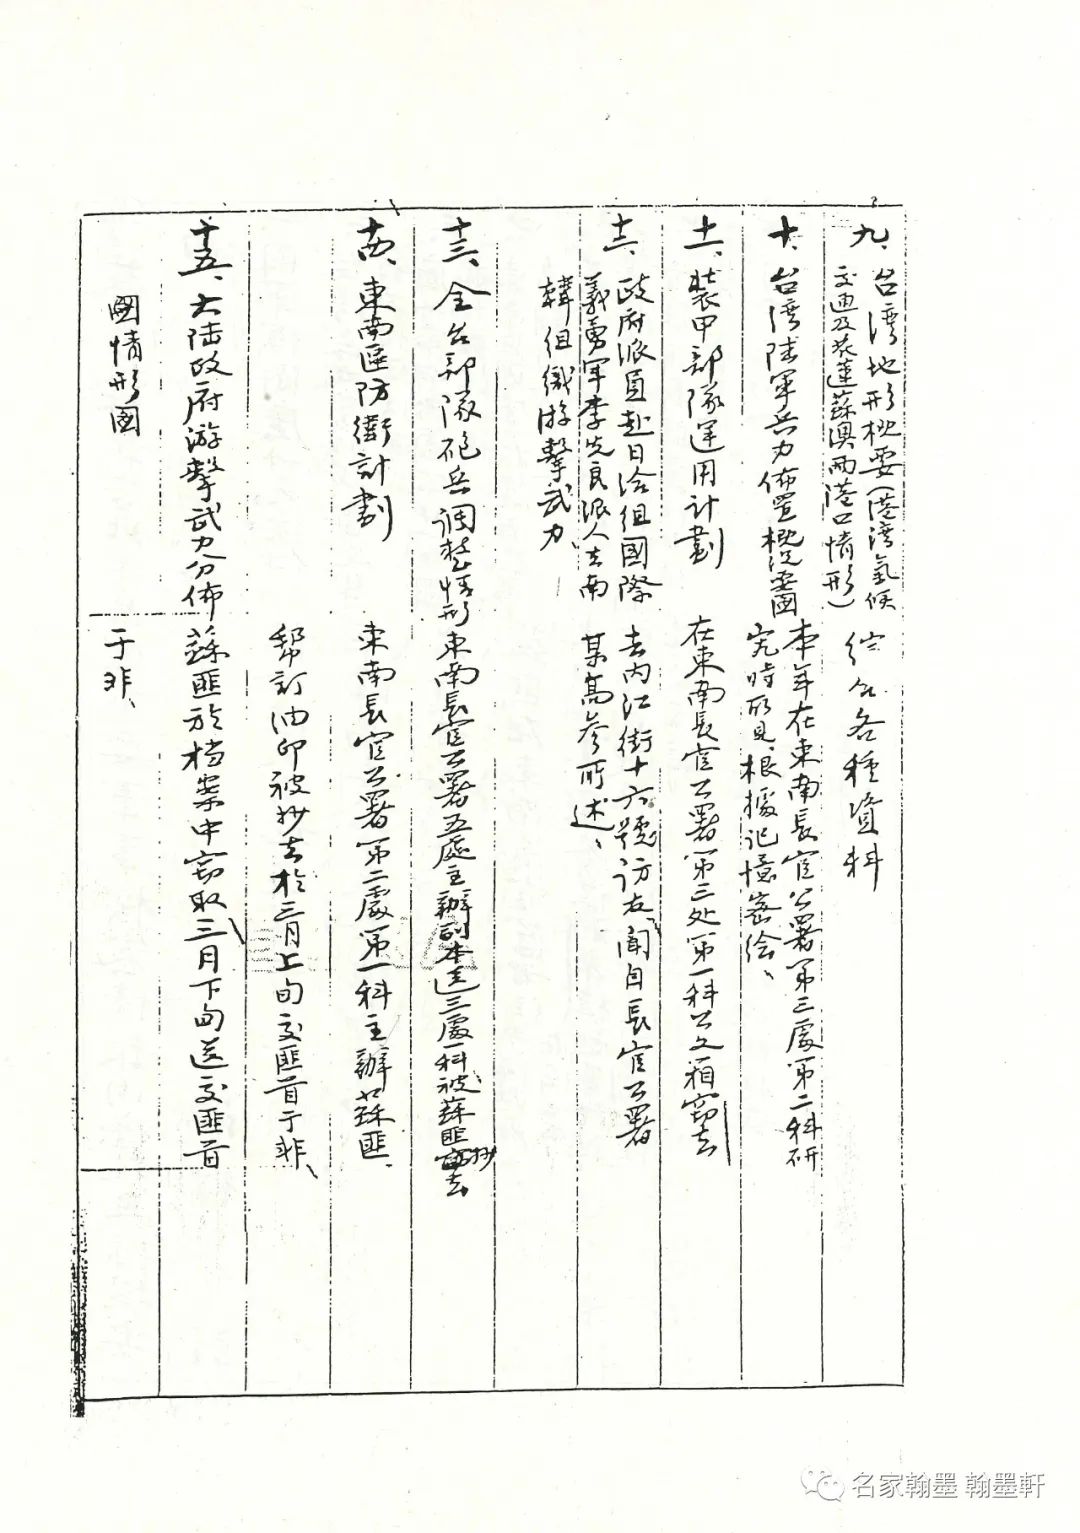 九、台湾地形概要(港湾氣候
交通及花蓮蘇澳兩港口情形)
綜合各種資料
十、台湾陸軍兵力佈置概況要圖
本年在東南長官公署第三處第二科研
究時所見、根據記憶密绘、
十一、裝甲部隊運用計劃
在東南長官公署第三处第一科公文箱竊去
十二、政府派員赴日洽組國際
義勇軍李先良派人去南
韓组織游擊武力、
去内江街十六號访友闻自長官公署
某高參所述、
十三、全台部隊砲兵調整情形
東南長官公署五處主辦副本送三處一科被蘇匪抄去
十四、東南區防衛計劃
東南長官公署第二處第一科主辦蘇匪、
帮訂油印被抄去於三月上旬交匪首于非、
十五、大陸政府游擊武力分佈
國情形圖
蘇匪於档案中竊取三月下旬送交匪首
于非、
名家翰墨 翰墨軒